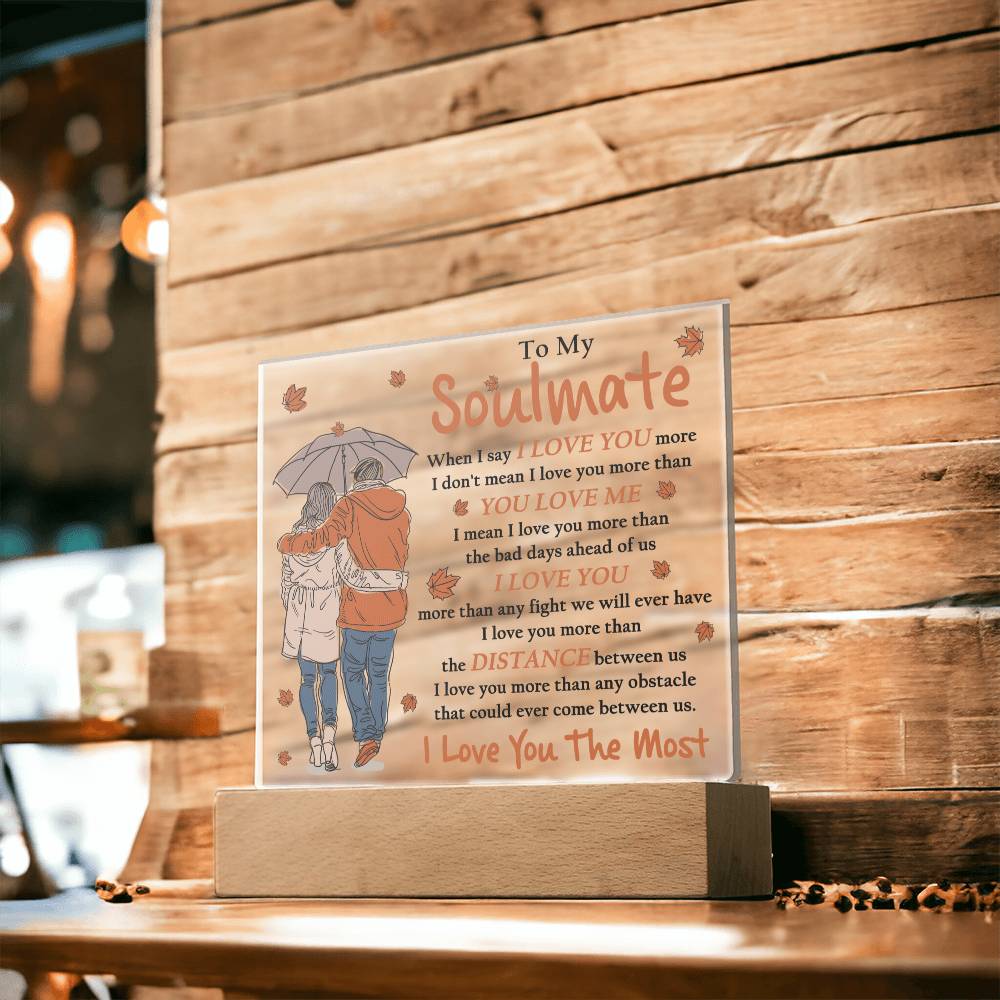 To My
Soulmate
When I say I LOVE YOU more
I don't mean I love you more than
YOU LOVE ME
I mean I love you more than
the bad days ahead of us
I LOVE YOU
more than any fight we will ever have
I love you more than
the DISTANCE between us
I love you more than any obstacle
that could ever come between us.
I Love You The Most